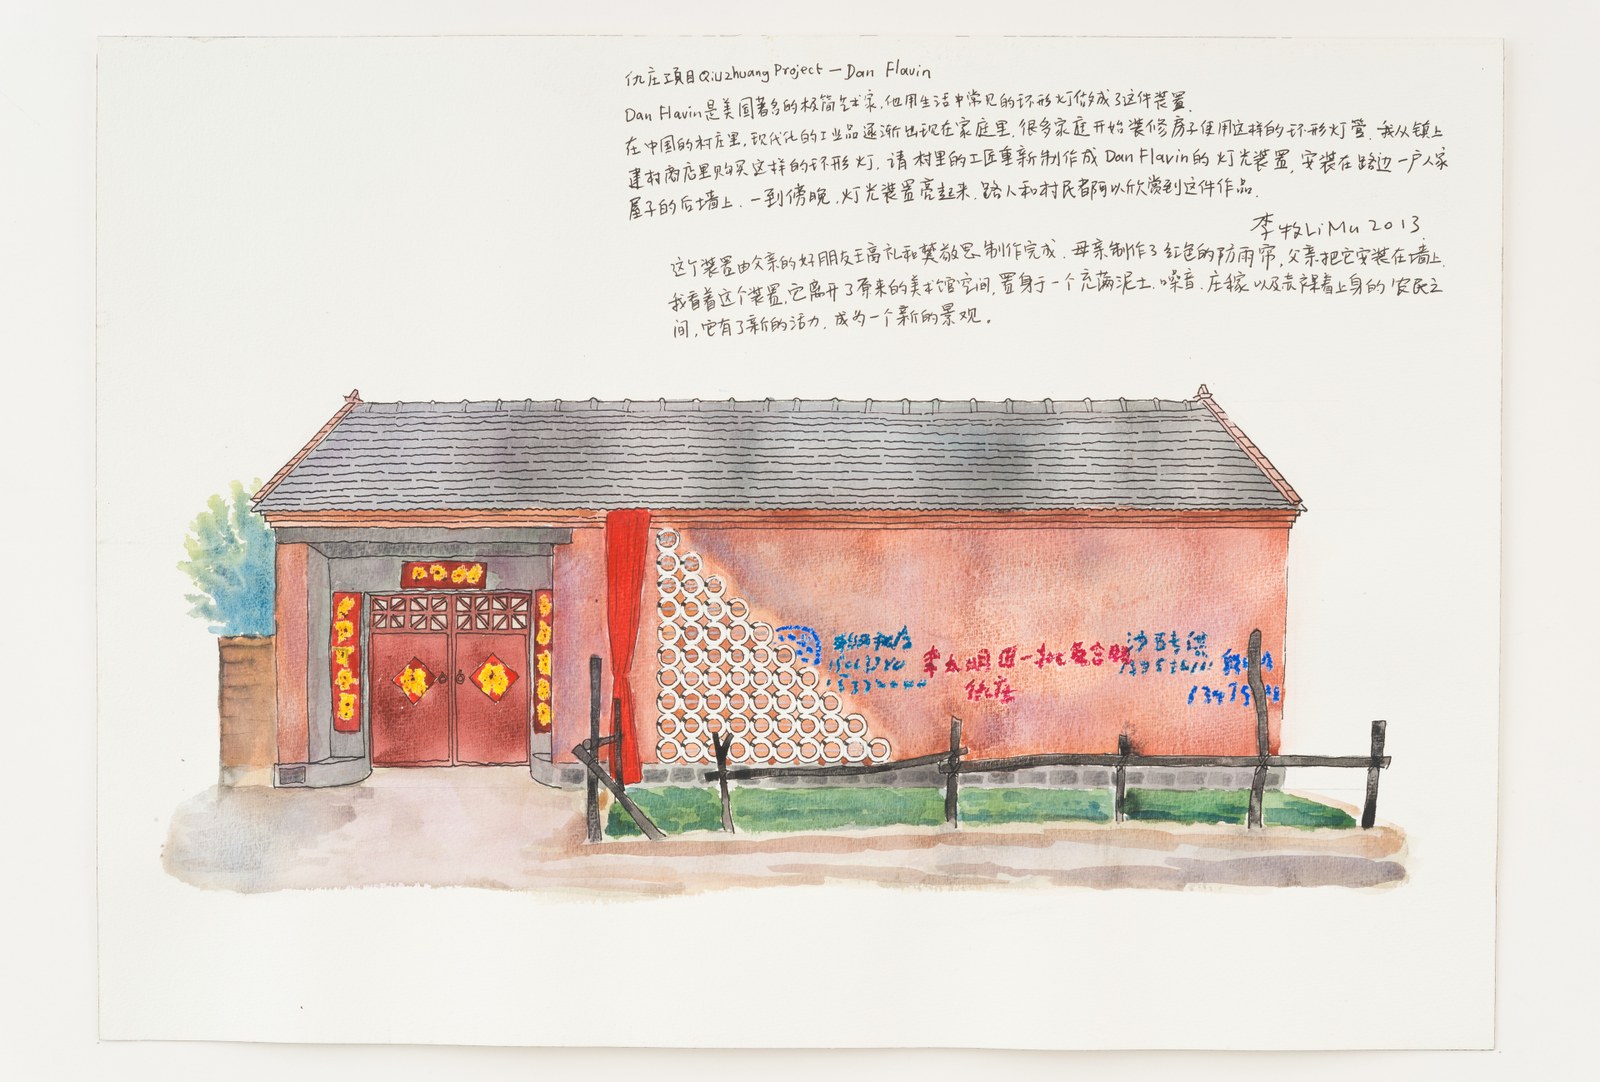 仇庄项目Qiuzhuang Project — Dan Flavin
Dan Flavin是美国著名的极简艺术家,他用生活中常见的环形灯做成了这件装置.
在中国的村庄里,现代化的工业品逐渐出现在家庭里,很多家庭开始装修房子使用这样的环形灯管.我从镇上
建材商店里购买这样的环形灯.请村里的工匠重新制作成Dan Flavin的灯光装置,安装在路边一户人家
屋子的后墙上.一到傍晚,灯光装置亮起来,路人和村民都可以欣赏到这件作品.
李牧LiMu 2013.
这个装置由父亲的好朋友王高礼和樊敬思制作完成.母亲制作了红色的防雨帘,父亲把它安装在墙上.
我看着这个装置,它离开了原来的美术馆空间,置身于一个充满泥土.噪音.庄稼以及赤裸着上身的农民之
间,它有了新的活力.成为一个新的景观。